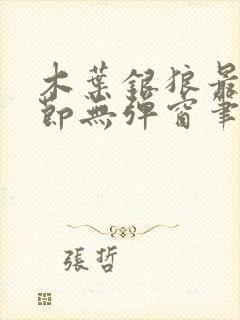 木葉銀狼最
節無彈窗筆
張哲